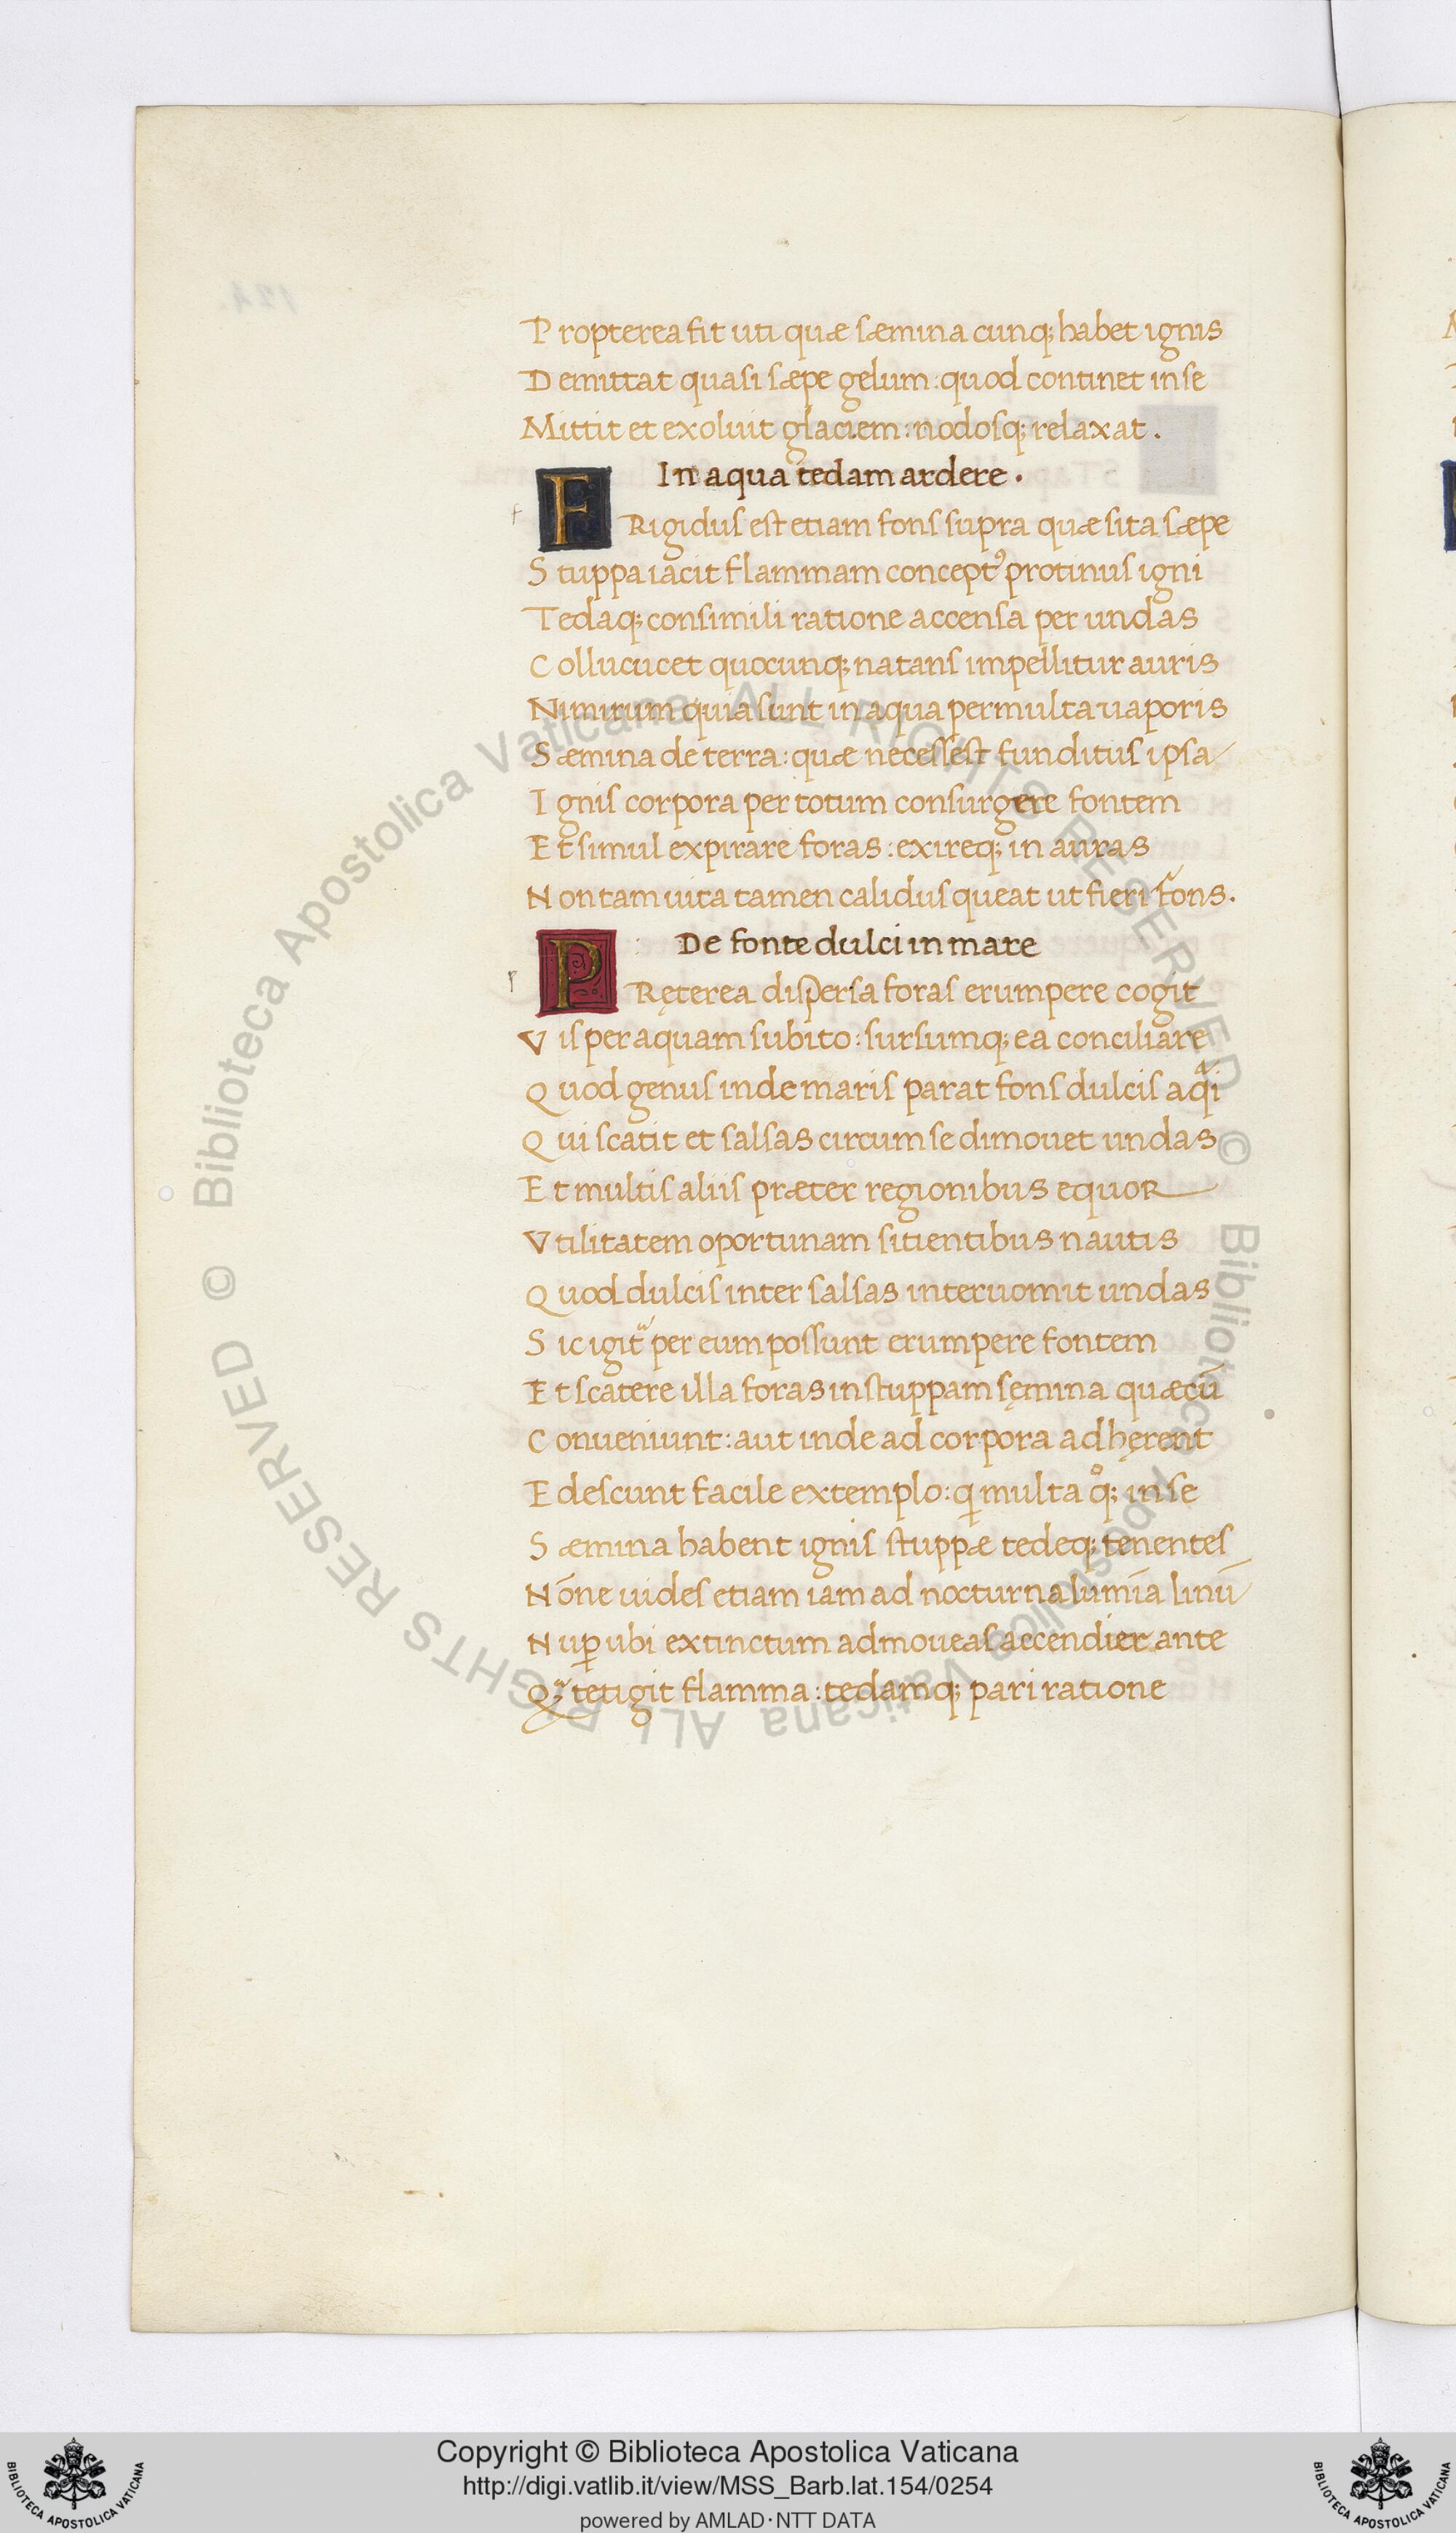 Propterea fit uti quæ sæmina cunq; habet ignis
Demittat quasi sæpe gelum: quod continet in se
Mittit et exoluit glaciem: nodosq; relaxat.
In aqua tedam ardere.
FRigidus est etiam fons supra quæ sita sæpe
Stuppa iacit flammam conceptꝰ protinus igni
Tedaq; consimili ratione accensa per undas
Collucucet quocunq; natans impellitur auris
Nimirum quia sunt in aqua permulta uaporis
Sæmina de terra: quæ necessest funditus ipsa
Ignis corpora per totum consurgere fontem
Et simul expirare foras: exireq; in auras
Non tam uita tamen calidus queat ut fieri fons.
De fonte dulci in mare
PRęterea dispersa foras erumpere cogit
Vis per aquam subito: sursumq; ea conciliare
Quod genus inde maris parat fons dulcis aqͣi
Qui scatit et salsas circum se dimouet undas
Et multis aliis præter regionibus equor
Vtilitatem oportunam sitientibus nautis
Quod dulcis inter salsas interuomit undas
Sic igit᷑ per eum possunt erumpere fontem
Et scatere illa foras in stuppam sęmina quæcū
Conueniunt: aut inde ad corpora adhęrent
Edescunt facile extemplo: ꝗ multa qͦq; in se
Sæmina habent ignis stuppæ tedeq; tenentes
Nōne uides etiam iam ad nocturna lumīa linū
Nuꝑ ubi extinctum admoueas accendier ante
Qꝫ tetigit flamma: tedamq; pari ratione
f
p
124.
© Biblioteca Apostolica Vaticana ALL RIGHTS RESERVED © Biblioteca Apostolica Vaticana ALL RIGHTS RESERVED
Copyright © Biblioteca Apostolica Vaticana
http://digi.vatlib.it/view/MSS_Barb.lat.154/0254
powered by AMLAD·NTT DATA
BIBLIOTECA APOSTOLICA VATICANA
BIBLIOTECA APOSTOLICA VATICANA